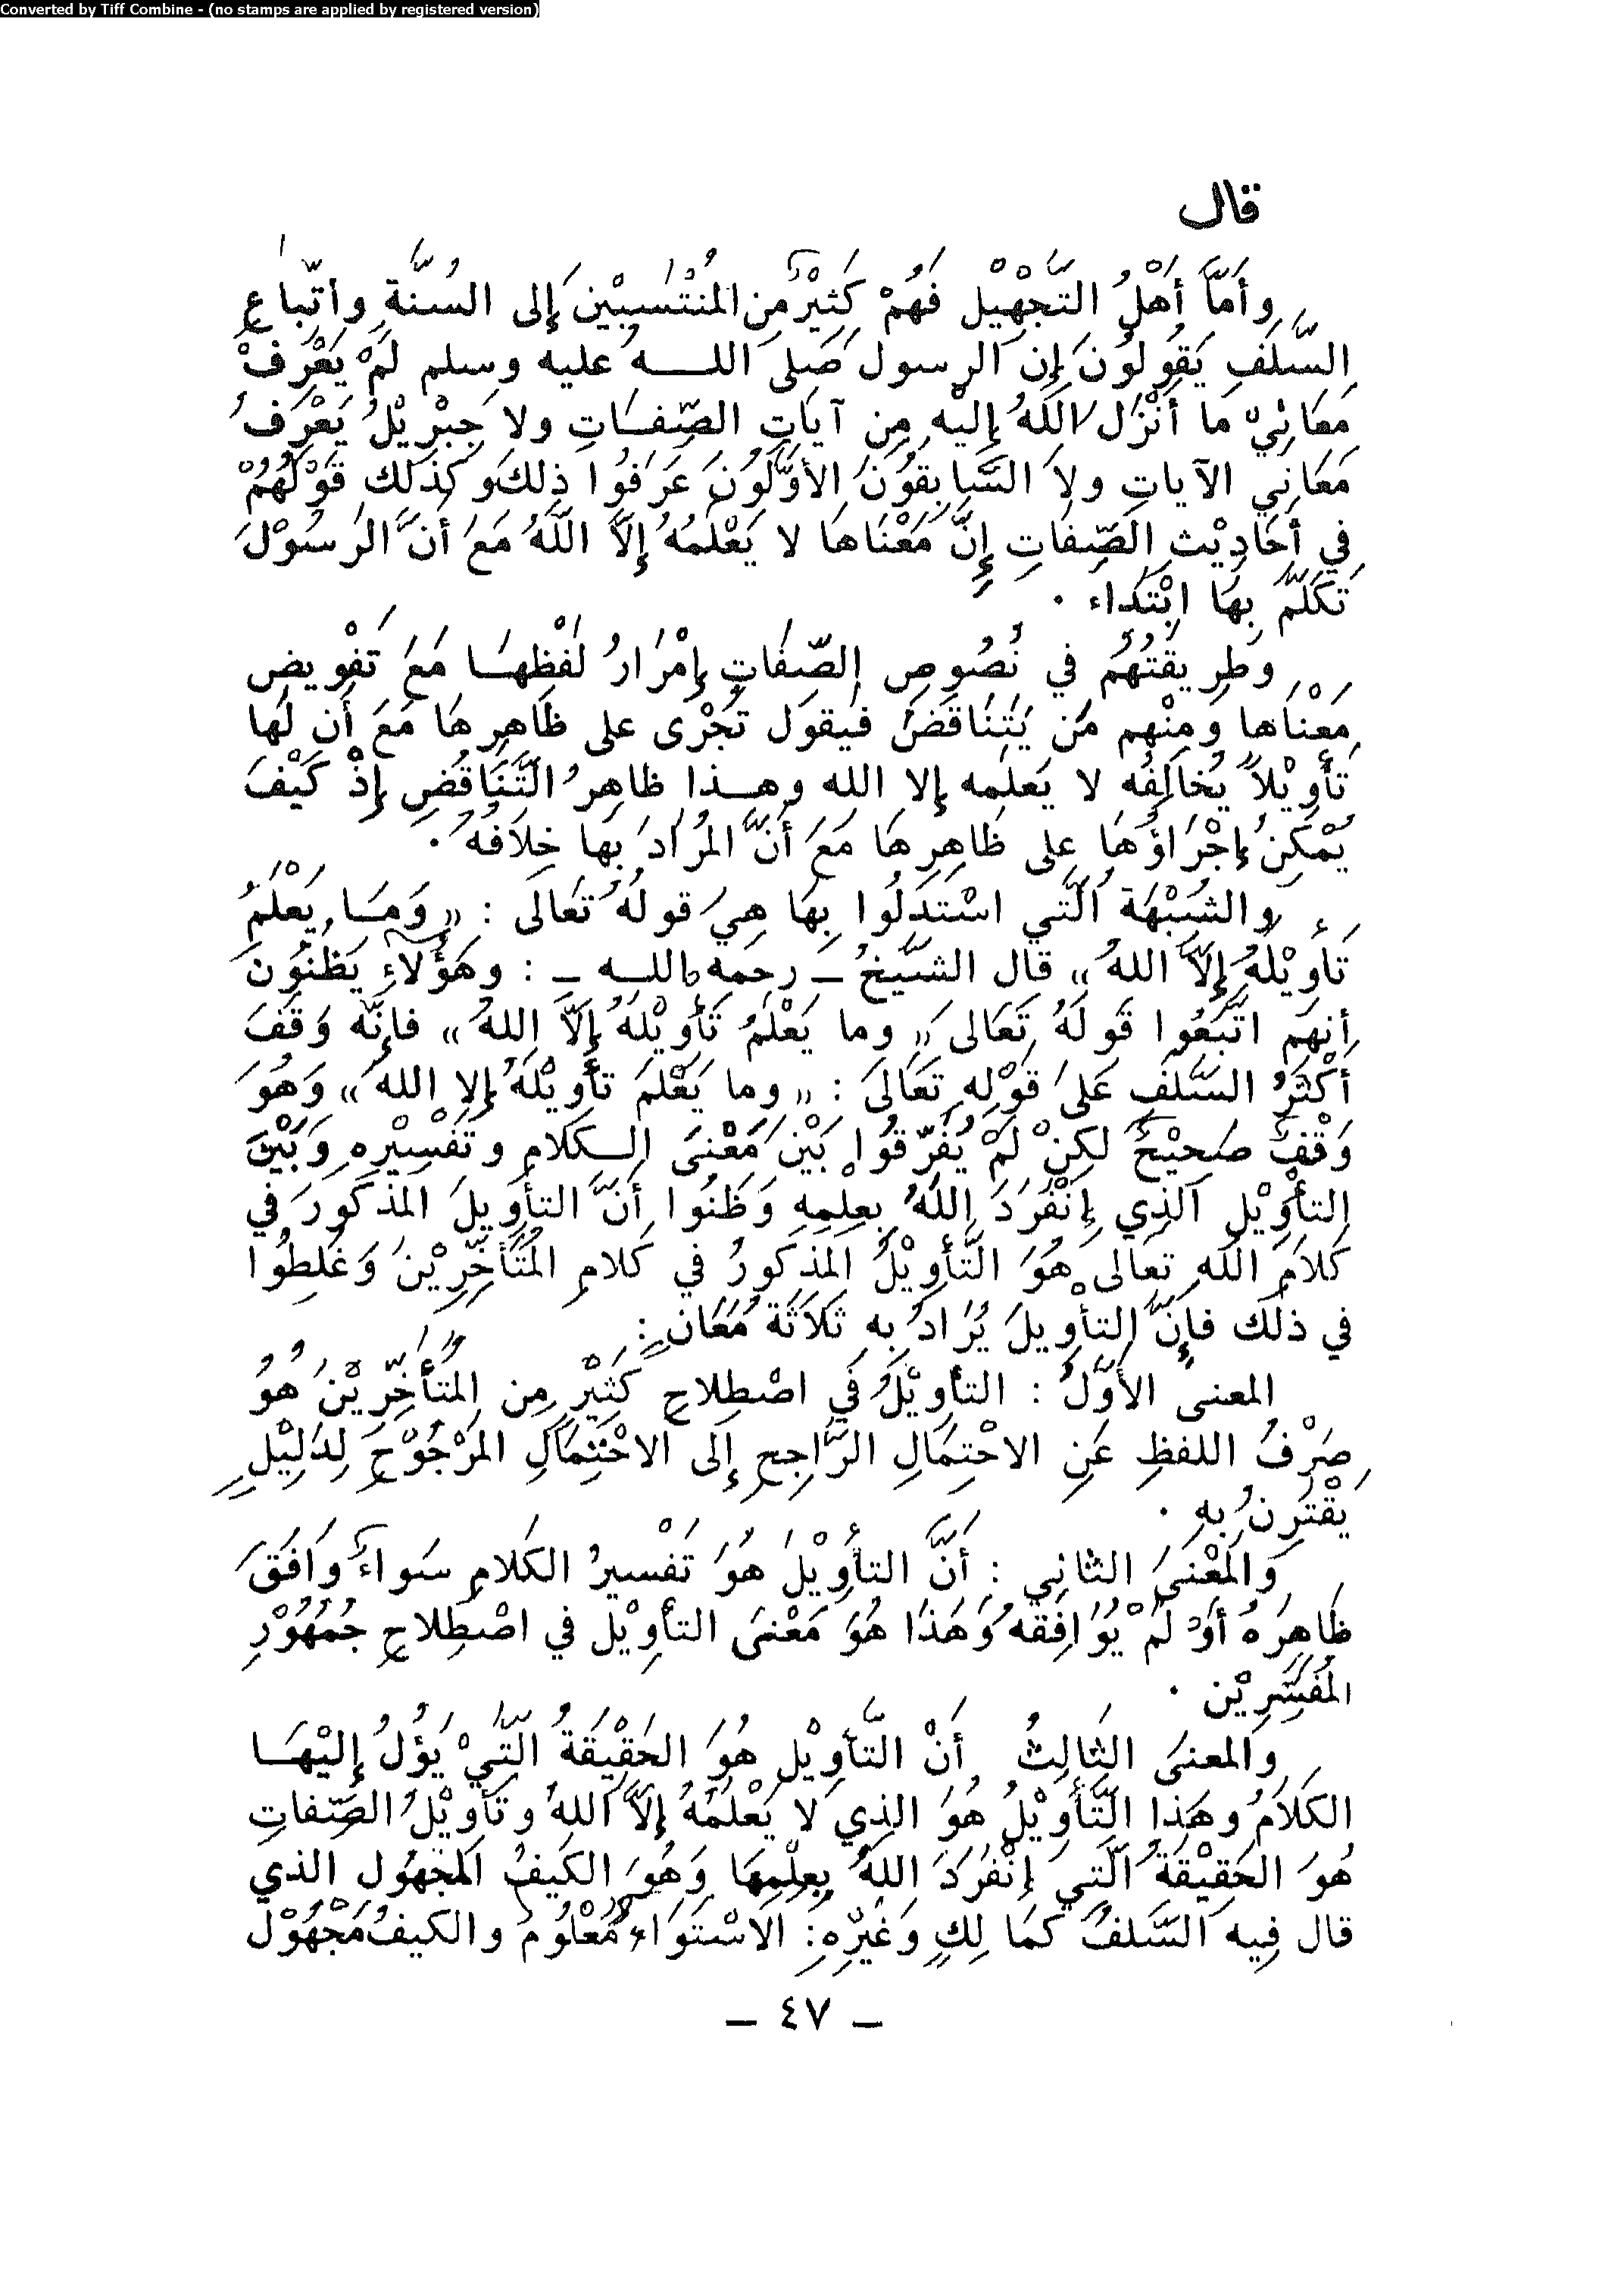 Converted by Tiff Combine - (no stamps are applied by registered version)
قال
وأَمَّا أَهْلُ التَّجْهِيْلِ فَهُمْ كَثِيْرٌ مِنَ المُنْتَسِبِيْنَ إِلى السُنَّةِ واتِّباعِ
السَّلَفِ يَقُولُونَ إِن الرسول صَلى اللــه عليه وسلم لَمْ يَعْرِفْ
مَعَانِيْ ما أَنْزَلَ اللَّهُ إِليْهِ مِن آيَاتِ الصِّفَاتِ ولا جِبْرِيْلُ يَعْرِفُ
مَعَانِي الآياتِ ولاَ السَّابِقُوْنَ الأوَّلُوْنَ عَرَفُوا ذِلكَ وكَذَلك قَوْلُهُمْ
فِي أَحَادِيْثِ الصِّفَاتِ إِنَّ مَعْنَاهَا لا يَعْلَمُهُ إِلاَّ اللَّهُ مَعَ أَنَّ الرَسُوْلَ
تَكَلَّمَ بِهَا ابْتَدَاء .
وطَرِيقَتُهُم في نُصُوصِ الصِّفَاتِ إِمْرَارُ لَفْظِهَـا مَعَ تَفْوِيضِ
مَعْنَاها ومِنْهم مَن يَتَنَاقَضُ فيقول تَجْرَى على ظَاهِرِهَا مَعَ أَن لَها
تَأْوِيْلاً يُخالِفُه لا يَعلَمه إلا الله وهـذا ظاهِرُ التَّنَاقُضِ إِذْ كَيْفَ
يُمْكِنُ إِجْرَاؤُهَا على ظَاهِرِهَا مَعَ أَنَّ المُرَادَ بِها خِلَافُهُ .
والشُبْهَة الَّتي اسْتَدَلُوا بِهَا هِيَ قولُهُ تَعَالَى : « وَمَـا يَعْلَمُ
تَأْوِيْلَهُ إِلاَّ اللهُ » قال الشَّيْخُ ــ رحِمَه اللــه ــ : وهَؤُلاَءِ يَظُنُّوْنَ
أَنهم اتَّبَعُوا قَولَهُ تَعَالى « وما يَعْلَمُ تَأْوِيْلَهُ إِلاَّ اللهُ » فإِنَّه وَقَفَ
أَكْثَرُ السَّلَفِ عَلَى قَوْلِهِ تَعَالَى : « وما يَعْلَم تأْوِيْلَهُ إِلا الله » وَهُوَ
وَقْفٌ صَحِيْحٌ لكِنْ لَمْ يُفَرِّقُوا بَيْنَ مَعْنَى الـكَلامِ وتَفْسِيْرِهِ وَبَيْنَ
التأْوِيْلِ الَّذِي إِنْفَرَدَ اللهُ بِعِلْمِهِ وَظَنُوا أَنَّ التأوِيلَ المَذكُورَ في
كَلاَمِ اللَّه تعالى هُوَ التَّأْوِيْلُ المَذكورُ في كَلامِ المُتَأَخِّرِيْنَ وَغَلِطُوا
في ذلك فإِنَّ التأْوِيلَ يُرَادُ بِهِ ثَلَاثَة مَعَانٍ :
المعنى الأَوَّلُ : التأوِيْلُ فِي اصْطِلاحِ كَثِيْرٍ مِن المُتَأَخِّرِيْنَ هُوَ
صَرْفُ اللفظِ عَنِ الاحْتِمَالِ الرَّاجِحِ إِلَى الاحْتِمَالِ المَرْجُوْحِ لِدَلِيْلٍ
يَقْتَرِنُ بِهِ .
والمَعْنَى الثانِي : أَنَّ التأْوِيْلَ هُوَ تَفْسِيرُ الكَلامِ سَواءً وَافَقَ
ظَاهِرَهُ أَوْ لَمْ يُوَافِقْهُ وَهَذَا هُوَ مَعْنَى التأْوِيْل في اصْطِلاحِ جُمْهُوْرِ
المُفَسِّرِيْن .
والمعنَى الثَالِثُ أَنْ التَّأْوِيْل هُوَ الحَقِيْقَةُ التَّيْ يَؤُلُ إِليْهَـا
الكَلاَمُ وهَذا التَّأْوِيْلُ هُوَ الذِي لا يَعْلَمُهُ إِلاَّ اللهُ وتَأْوِيْلُ الصِّفاتِ
هُوَ الحَقِيْقَةُ الَّتِي إِنْفَرَدَ اللهُ بِعِلْمِهَا وَهُوَ الكَيفُ المَجْهُول الذي
قال فِيه السَّلفُ كَمَا لِكٍ وَغَيْرِهِ: الاسْتَوَاءُ مَعْلُومٌ والكيفُ مَجْهُوْلٌ
ــ ٤٧ ــ